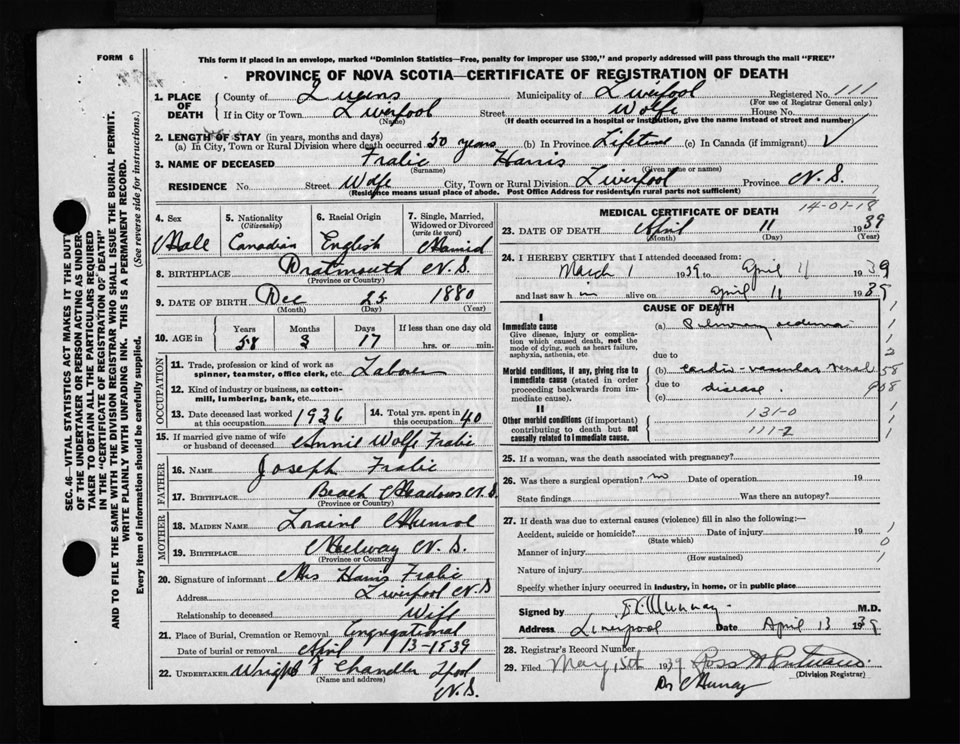 FORM 6
This form if placed in an envelope, marked "Dominion Statistics—Free, penalty for improper use $300," and properly addressed will pass through the mail "FREE"
PROVINCE OF NOVA SCOTIA—CERTIFICATE OF REGISTRATION OF DEATH
SEC. 46—VITAL STATISTICS ACT MAKES IT THE DUTY
OF THE UNDERTAKER OR PERSON ACTING AS UNDER-
TAKER TO OBTAIN ALL THE PARTICULARS REQUIRED
IN THE "CERTIFICATE OF REGISTRATION OF DEATH"
AND TO FILE THE SAME WITH THE DIVISION REGISTRAR WHO SHALL ISSUE THE BURIAL PERMIT.
WRITE PLAINLY WITH UNFADING INK. THIS IS A PERMANENT RECORD.
Every item of information should be carefully supplied. (See reverse side for instructions.)
1. PLACE OF DEATH
County of Queens Municipality of Liverpool Registered No. 111
(For use of Registrar General only)
If in City or Town Liverpool Street Wolfe House No.
(Name) (If death occurred in a hospital or institution, give the name instead of street and number)
2. LENGTH OF STAY (in years, months and days)
(a) In City, Town or Rural Division where death occurred 50 years (b) In Province Lifetime (c) In Canada (if immigrant)
3. NAME OF DECEASED Fralic Harris
(Surname) (Given name or names)
RESIDENCE No Street Wolfe City, Town or Rural Division Liverpool Province N.S.
(Residence means usual place of abode. Post Office Address for residents in rural parts not sufficient)
4. Sex Male
5. Nationality (Citizenship) Canadian
6. Racial Origin English
7. Single, Married, Widowed or Divorced (write the word) Married
8. BIRTHPLACE Dratmouth N.S.
(Province or Country)
9. DATE OF BIRTH Dec 25 1880
(Month) (Day) (Year)
10. AGE in Years Months Days If less than one day old
58 3 17 hrs. or min.
OCCUPATION
11. Trade, profession or kind of work as spinner, teamster, office clerk, etc. Laborer
12. Kind of industry or business, as cotton-mill, lumbering, bank, etc.
13. Date deceased last worked at this occupation 1936
14. Total yrs. spent in 40
15. If married give name of wife or husband of deceased Annie Wolfe Fralic
FATHER
16. NAME Joseph Fralic
17. BIRTHPLACE Beach Meadows N.S.
(Province or Country)
MOTHER
18. MAIDEN NAME
19. BIRTHPLACE N.S.
(Province or Country)
20. Signature of informant Mrs Harris Fralic
Address Liverpool N.S
Relationship to deceased Wife
21. Place of Burial, Cremation or Removal Congregational
Date of burial or removal April 13-1939
22. UNDERTAKER Wright & Chandler Lpool
(Name and address) N.S.
MEDICAL CERTIFICATE OF DEATH
14-01-18
23. DATE OF DEATH April 11 1939
(Month) (Day) (Year)
24. I HEREBY CERTIFY that I attended deceased from:
March 1 1939 to April 11 1939
and last saw him alive on April 11 1939
CAUSE OF DEATH
I
Immediate cause
Give disease, injury or complication which caused death, not the mode of dying, such as heart failure, asphyxia, asthenia, etc
(a) Pulmonary oedema
due to
Morbid conditions, if any, giving rise to immediate cause (stated in order proceeding backwards from immediate cause).
(b) cardio-vascular renal
due to disease.
(c)
II
Other morbid conditions (if important) contributing to death but not causally related to immediate cause.
131-0
111-2
1
1
1
2
58
908
1
1
1
25. If a woman, was the death associated with pregnancy?
26. Was there a surgical operation? no Date of operation 19
State findings Was there an autopsy?
27. If death was due to external causes (violence) fill in also the following:—
Accident, suicide or homicide? Date of injury 19
(State which)
Manner of injury
(How sustained)
Nature of injury
Specify whether injury occurred in industry, in home, or in public place
1
0
1
Signed by Murray M.D.
Address Liverpool Date April 13 1939
28. Registrar's Record Number
29. Filed May 15th 1939 Ross
(Division Registrar)
Dr Murray